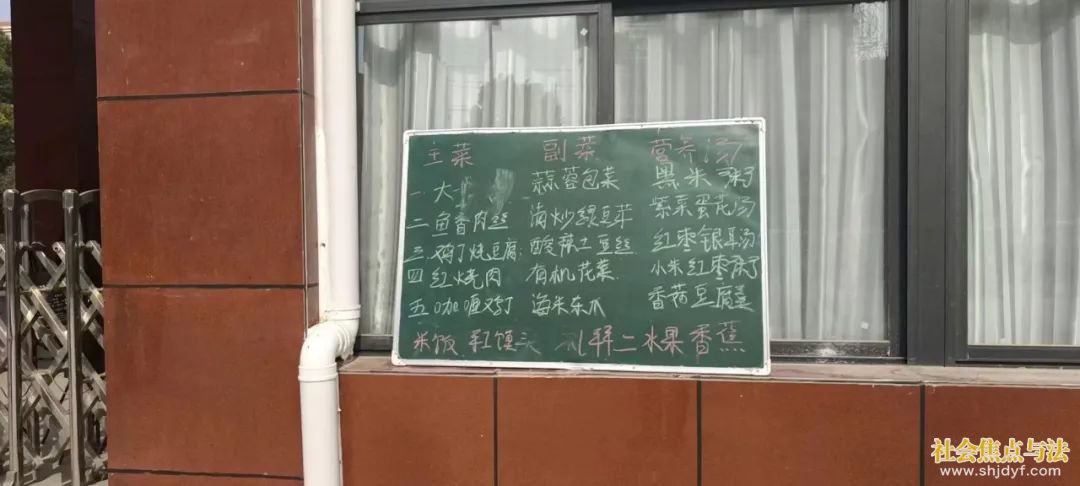 主菜 副菜 营养汤
一 大 蒜蓉包菜 黑米粥
二 鱼香肉丝 清炒绿豆芽 紫菜蛋花汤
三 鸡丁烧豆腐 酸辣土豆丝 红枣银耳汤
四 红烧肉 有机花菜 小米红枣粥
五 咖喱鸡丁 海米冬瓜 香菇豆腐羹
米饭 馒头 礼拜二水果香蕉
社会焦点与法
www.shjdyf.com